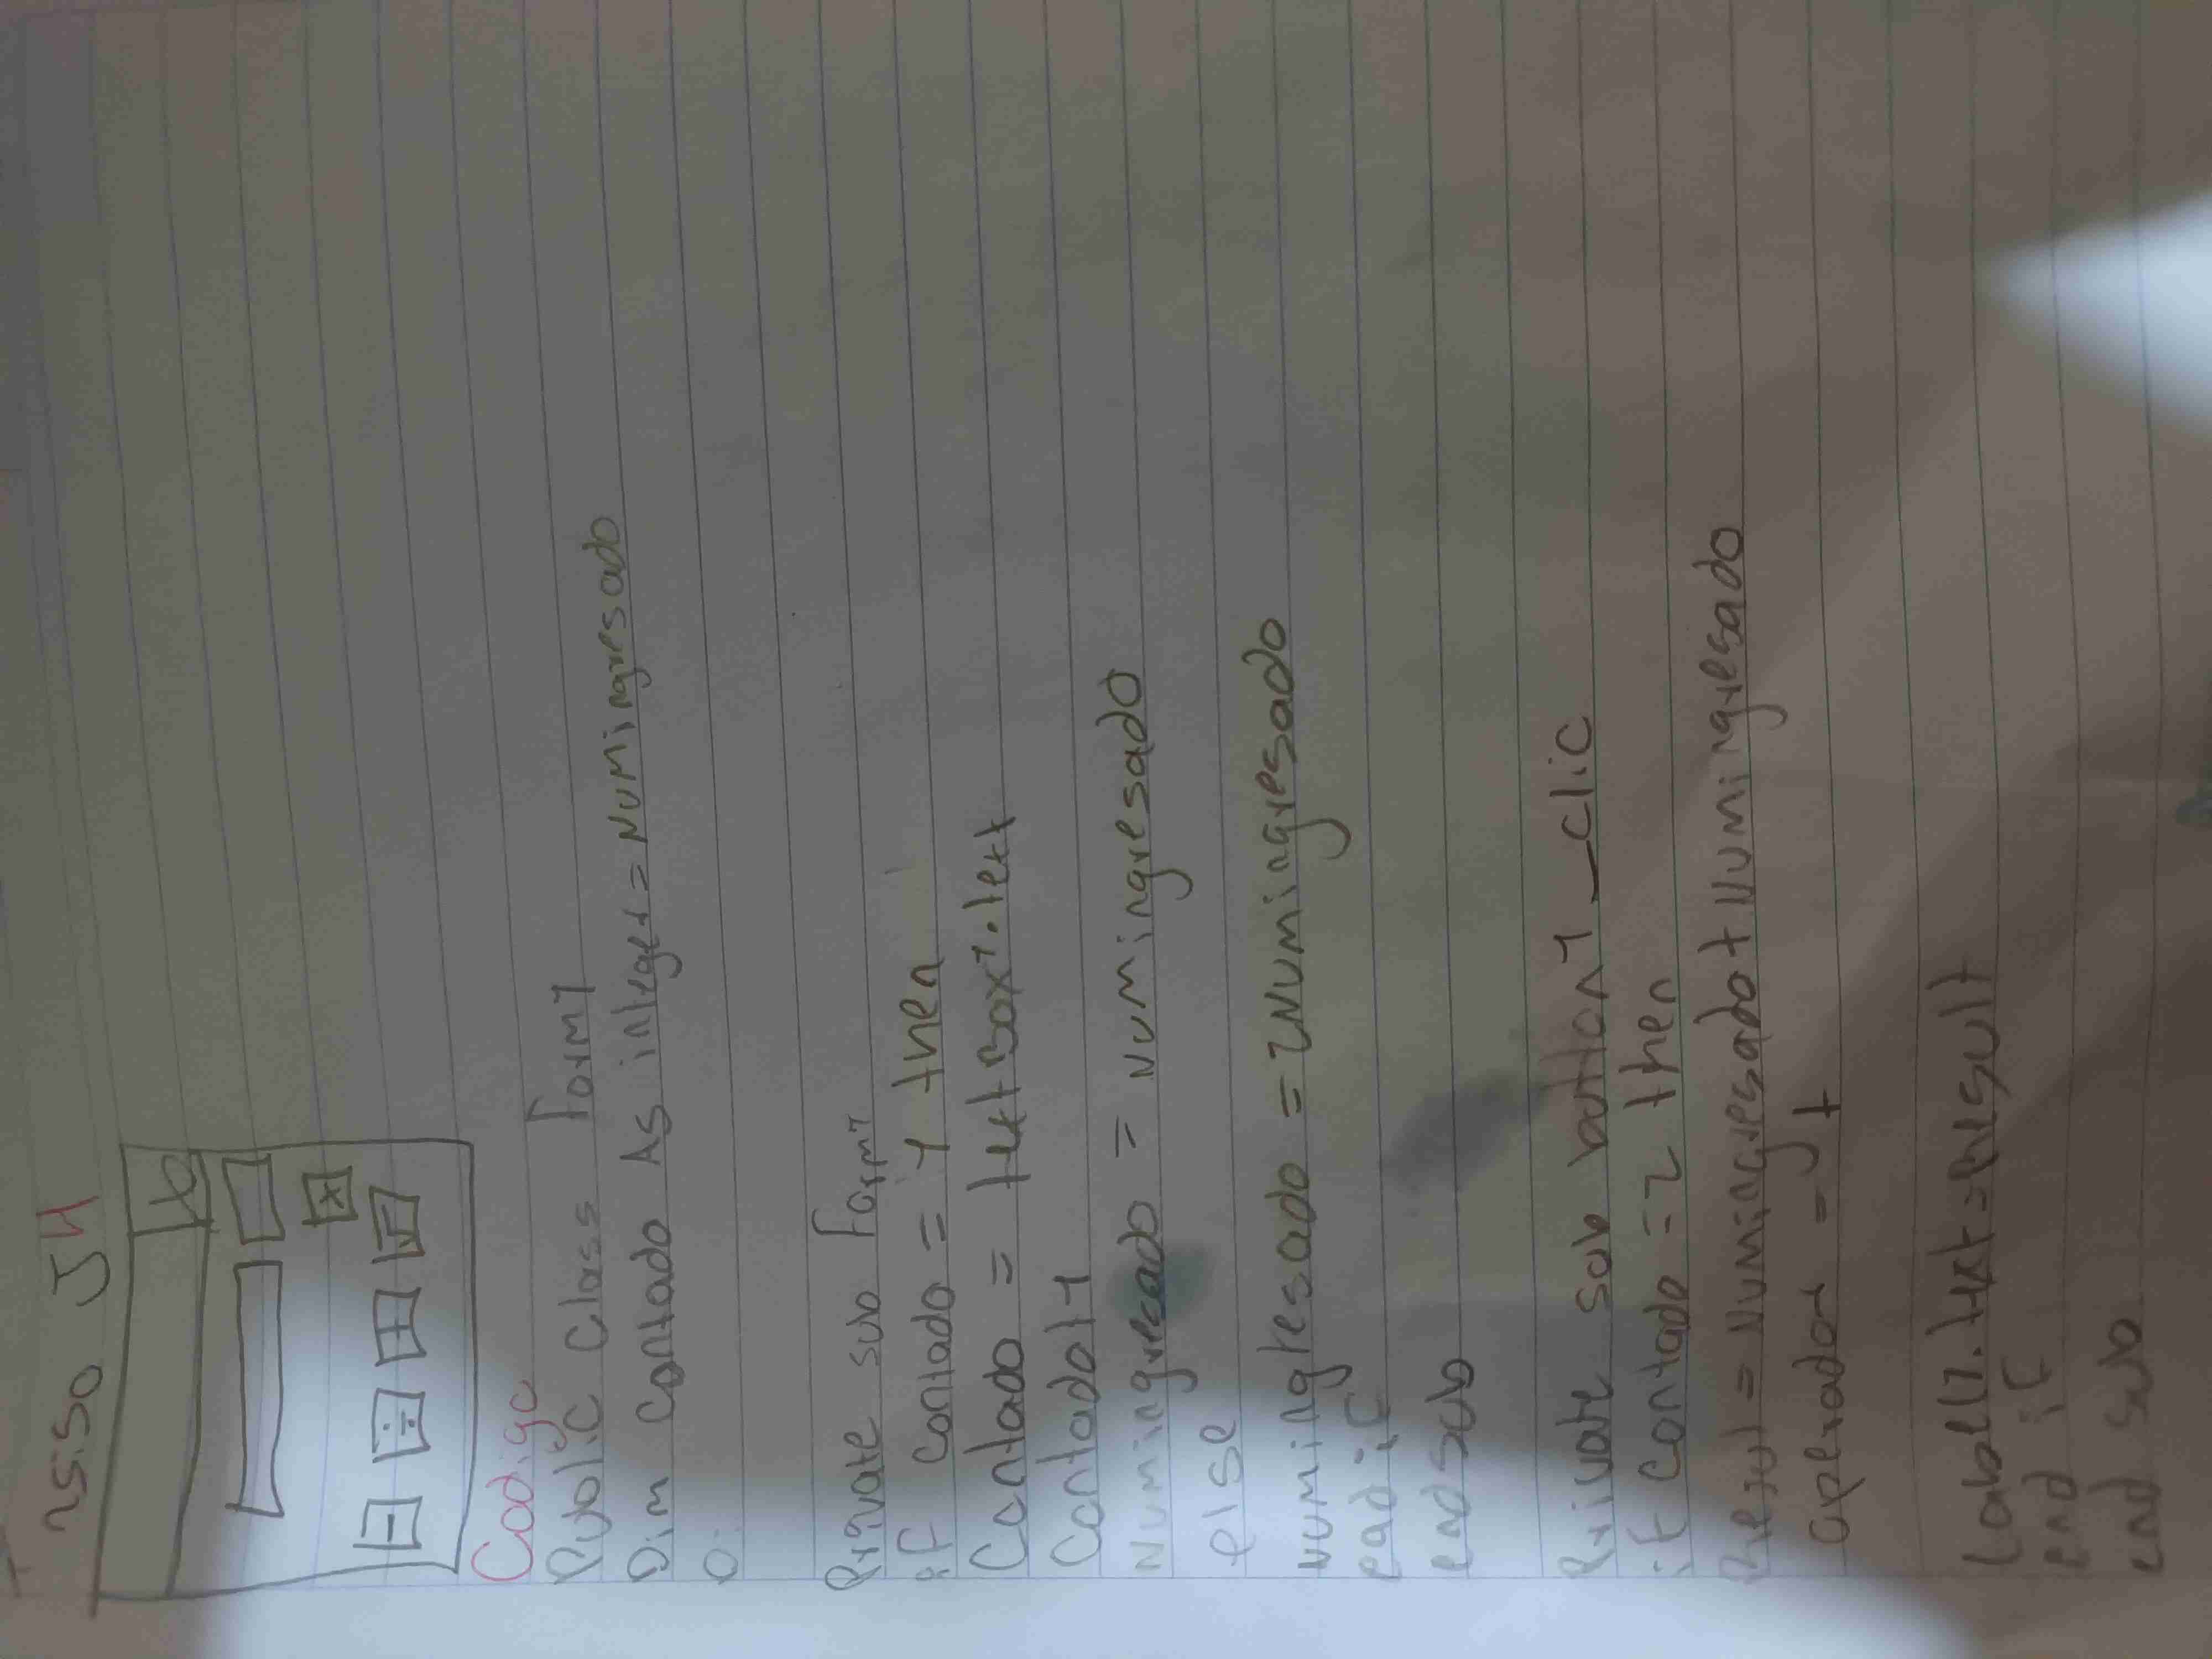 - ÷ + √
x
Codigo
Public Class Form1
Dim Contado As integer = Numingresado
D.
Private sub Form1
if Contado = 1 then
Contado = textBox1.text
Contado + 1
Numingresado = Numingresado
else
Numingresado = 2Numingresado
end if
end sub
Private sub button1_clic
if Contado = 2 then
Resul = Numingresado + Numingresado
Operador = +
Labell1.text = Result
end if
end sub